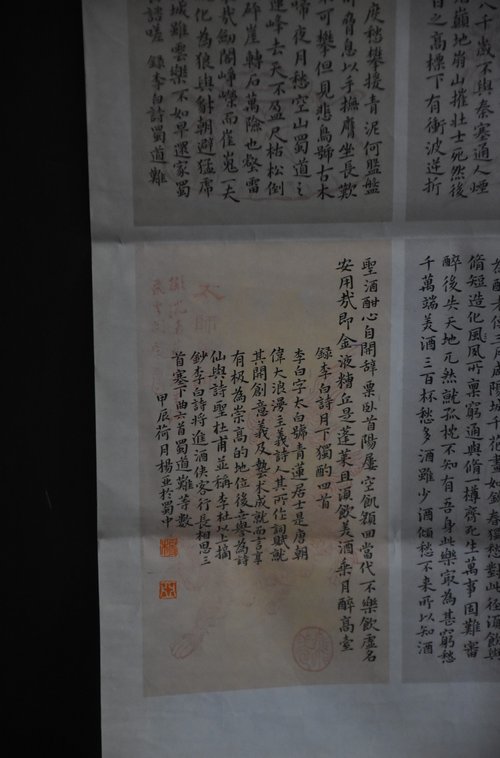 八千歲不與秦塞通人煙
巔地崩山摧壯士死然後
日之高標下有衝波逆折
度愁攀援青泥何盤盤
脅息以手撫膺坐長歎
可攀但見悲鳥號古木
啼夜月愁空山蜀道之
連峰去天不盈尺枯松倒
碎崖轉石萬險也雷
哉劍閣崢嶸而崔嵬一夫
化為狼與豺朝避猛虎
城雖雲樂不如早還家蜀
諮嗟 錄李白詩蜀道難
三月咸陽城千花晝如錦春獨愁對此徑須飲與
脩短造化夙所稟窮通與脩一樽齊死生萬事固難審
醉後失天地兀然就孤枕不知有吾身此樂最為甚窮愁
千萬端美酒三百杯愁多酒雖少酒傾愁不來所以知酒
聖酒酣心自開辭粟臥首陽屢空飢顏回當代不樂飲虛名
安用哉即金液糟丘是蓬萊且須飲美酒乘月醉高臺
錄李白詩月下獨酌四首
李白字太白號青蓮居士是唐朝
偉大浪漫主義詩人其所作詞賦就
其開創意義及藝術成就而言享
有极為崇高的地位後世譽為詩
仙與詩聖杜甫並稱李杜以上搞
鈔李白詩將進酒俠客行長相思三
首塞下曲六首蜀道難等數
甲辰荷月楊亚於蜀中